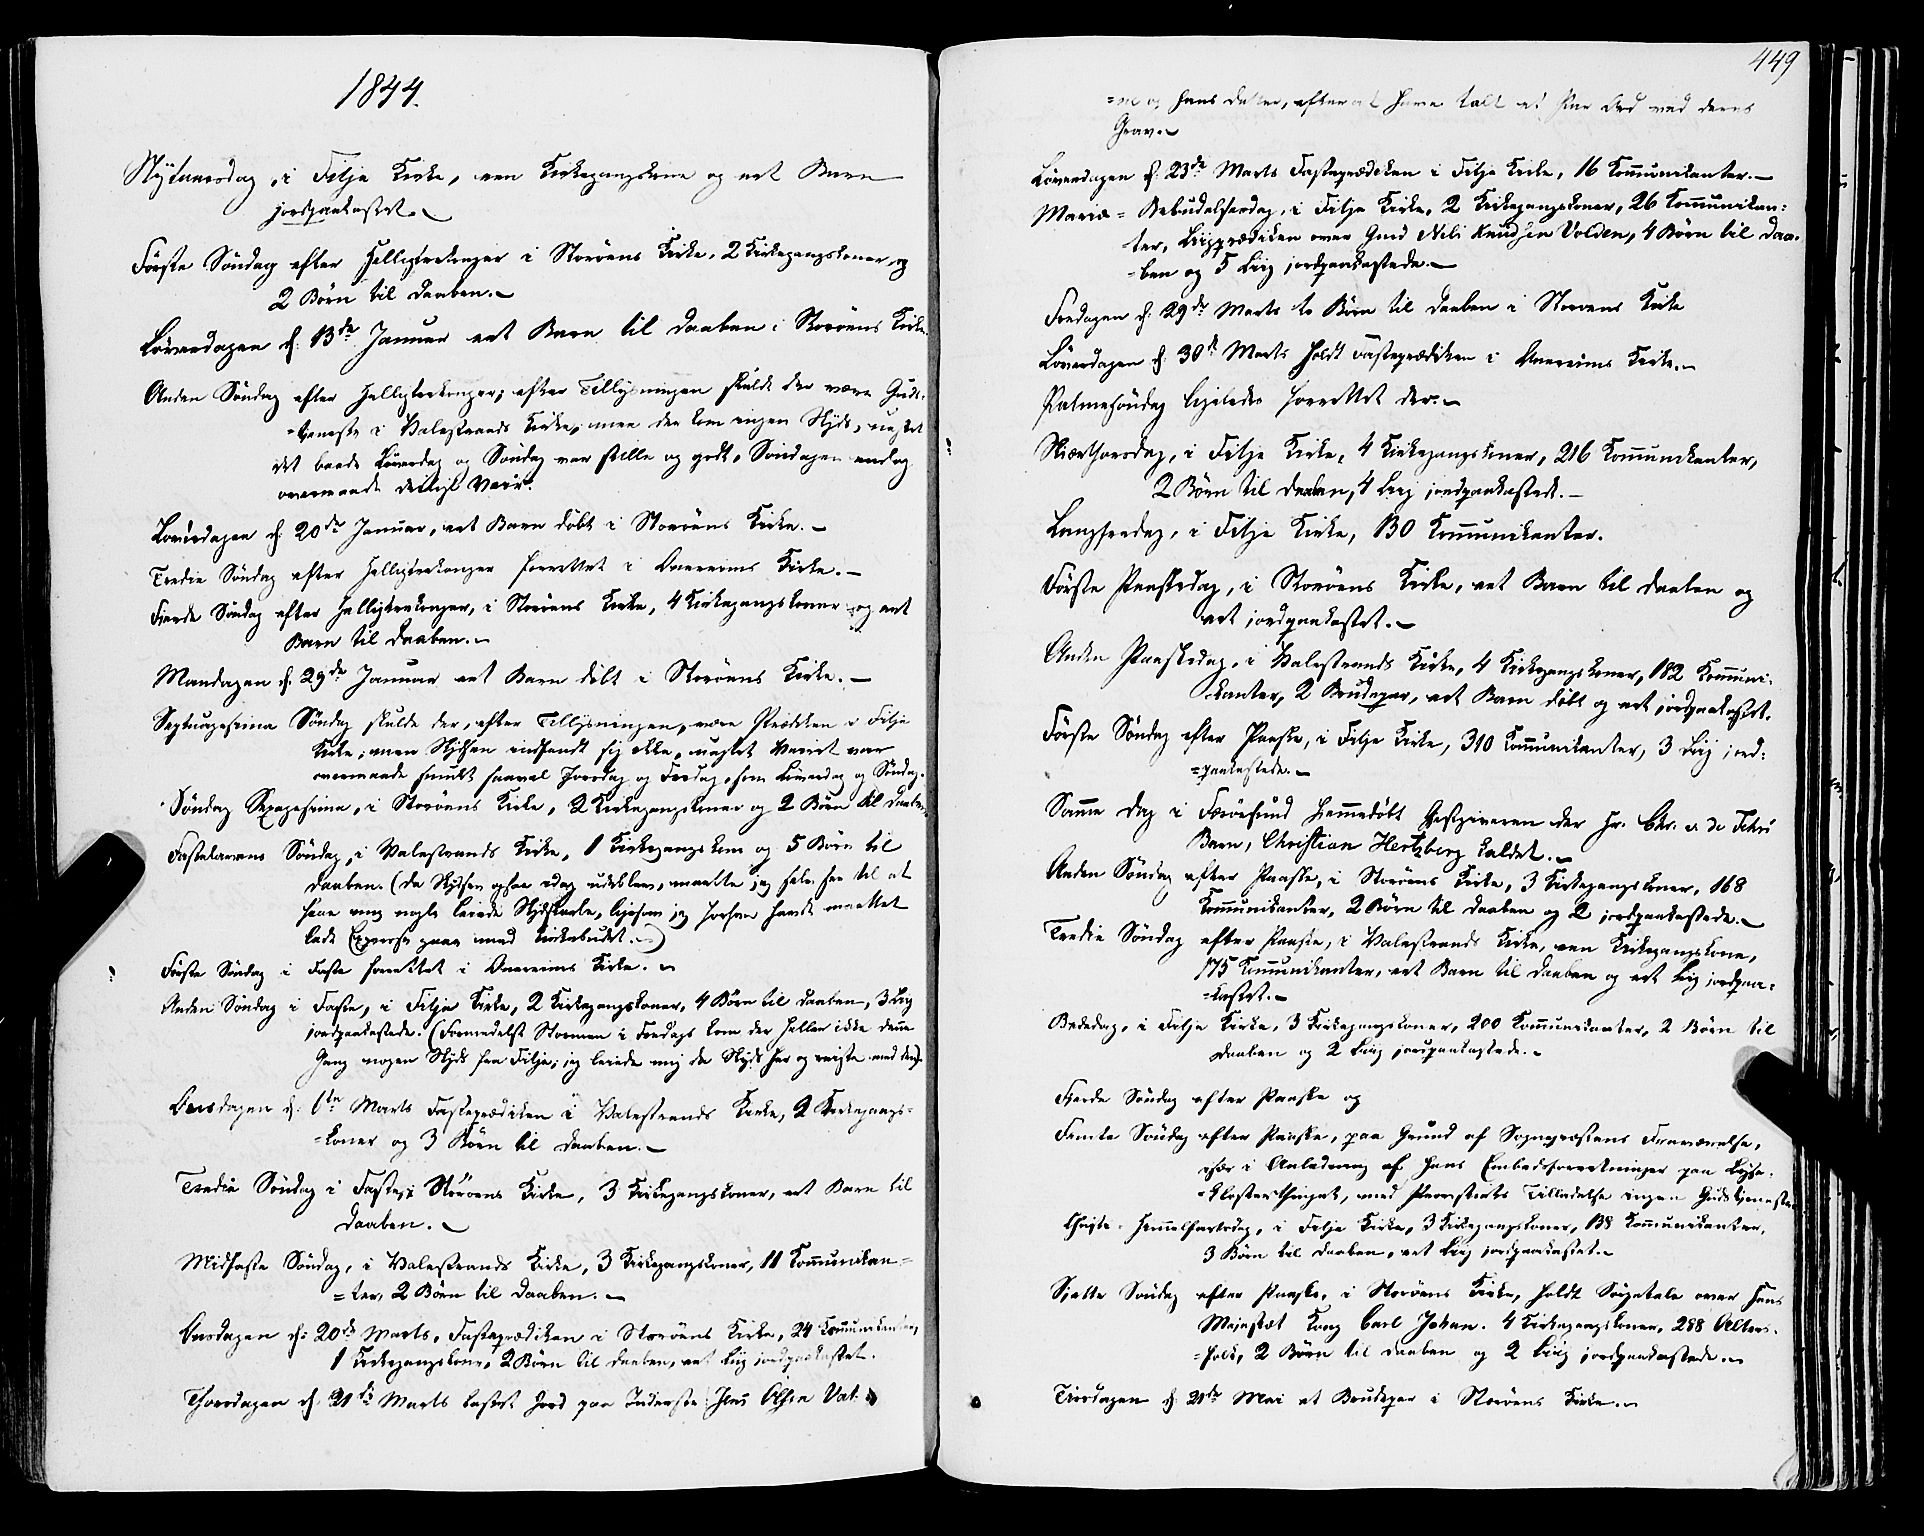 1844.
Nytaarsdag, i Fitje Kirke, een Kirkegangskone og eet Barn
jordpaakastet.
Förste Söndag efter Helligtrekonger i Storöens Kirke, 2 Kirkegangskoner og
2 Börn til Daaben.
Löverdagen d. 13de Januar eet Barn til Daaben i Storöens Kirke.
Anden Söndag efter Helligtrekonger; efter Tillysningen skulde der være Guds-
=tjeneste i Valestrands Kirke, men der kom ingen Skyds, uagtet
det baade Löverdag og Söndag var stille og godt, Söndagen endog
overmaade deiligt Veir.
Löverdagen d. 20de Januar, eet Barn döbt i Storöens Kirke.
Tredie Söndag efter Helligtrekonger forrettet i Kirke.
Fjerde Söndag efter Helligtrekonger, i Storöens Kirke, 4 Kirkegangskoner og eet
Barn til Daaben.
Mandagen d. 29de Januar eet Barn döbt i Storöens Kirke.
Septuagesima Söndag skulde der, efter Tillysningen, være Prædiken i Fitje
Kirke; men Skydsen indfandt sig ikke, uagtet Veiret var
overmaade smukt saavel Thorsdag og Fredag, som Löverdag og Söndag.
Söndag Sexagesima, i Storöens Kirke, 2 Kirkegangskoner og 2 Börn til Daaben.
Fastelavens Söndag, i Valestrands Kirke, 1 Kirkegangskone og 5 Börn til
Daaben. (Da Skydsen ogsaa idag udeblev, maatte jeg selv see til at
faae mig nogle leiede Skydskarle, ligesom jeg forhen havde maattet
lade Expresse gaae med Kirkebudet.)
Förste Söndag i Faste forrettet i Kirke.
Anden Söndag i Faste, i Fitje Kirke, 2 Kirkegangskoner, 4 Börn til Daaben, 3 Liig
jordpaakastede. (Formedelst Stormen i Fredags kom der heller ikke denne
Gang nogen Skyds fra Fitje; jeg leiede mig da Skyds her og reiste med den).
Onsdagen d. 6te Marts Fasteprædiken i Valestrands Kirke, 2 Kirkegangs-
=koner og 3 Börn til Daaben.
Tredie Söndag i Faste, i Storöens Kirke, 3 Kirkegangskoner, eet Barn til
Daaben.
Midfaste Söndag, i Valestrands Kirke, 3 Kirkegangskoner, 11 Kommunikan-
=ter, 2 Börn til Daaben.
Onsdagen d: 20de Marts, Fasteprædiken i Storöens Kirke, 24 Kommunikanter,
1 Kirkegangskone, 2 Börn til Daaben, eet Liig jordpaakastet.
Thorsdagen d. 21de Marts kastet Jord paa Inderste Jens Olsen Vat-
449
=ne og hans Datter, efter at have talt et Par Ord ved deres
Grav.
Löverdagen d. 23de Marts Fasteprædiken i Fitje Kirke, 16 Kommunikanter.
Mariæ = Bebudelsesdag, i Fitje Kirke, 2 Kirkegangskoner, 26 Kommunikan-
ter, Liigprædiken over Gmd Nels Knudsen Volden, 4 Börn til Daa-
=ben og 5 Liig jordpaakastede.
Fredagen d. 29de Marts to Börn til Daaben i Storöens Kirke
Löverdagen d. 30te Marts holdt Fasteprædiken i Kirke.
Palmesöndag ligeledes forrettet der.
Skiærthorsdag, i Fitje Kirke, 4 Kirkegangskoner, 216 Kommunikanter,
2 Börn til Daaben, 4 Liig jordpaakastede.
Langfredag, i Fitje Kirke, 130 Kommunikanter.
Förste Paaskedag, i Storöens Kirke, eet Barn til Daaben og
eet jordpaakastet.
Anden Paaskedag, i Valestrands Kirke, 4 Kirkegangskoner, 182 Kommuni-
kanter, 2 Brudepar, eet Barn döbt og eet jordpaakastet.
Förste Söndag efter Paaske, i Fitje Kirke, 310 Kommunikanter, 3 Liig jord-
=paakastede.
Samme Dag i Færöesund hjemmedöbt Gjestgiveren der Hr. Chr.
Barn, Christian Hertzberg kaldet.
Anden Söndag efter Paaske, i Storöens Kirke, 3 Kirkegangskoner, 168
Kommunikanter, 2 Börn til Daaben og 2 jordpaakastede.
Tredie Söndag efter Paaske, i Valestrands Kirke, een Kirkegangskone,
175 Kommunikanter, eet Barn til Daaben og eet Liig jordpaa-
=kastet.
Bededag, i Fitje Kirke, 3 Kirkegangskoner, 200 Kommunikanter, 2 Börn til
Daaben og 2 Liig jordpaakastede.
Fjerde Söndag efter Paaske og
Femte Söndag efter Paaske, paa Grund af Sognepræstens Fraværelse,
i Anledning af hans Embedsforretninger paa Lyse-
=klosterthinget, med Provstiets Tilladelse ingen Gudstjeneste.
Christi Himmelfartsdag, i Fitje Kirke, 3 Kirkegangskoner, 138 Kommunikanter,
3 Börn til Daaben, eet Liig jordpaakastet.
Sjette Söndag efter Paaske, i Storöens Kirke, holdt Sörgetale over Hans
Majestæt Kong Carl Johan. 4 Kirkegangskoner, 288 Alters-
=folk, 2 Börn til Daaben og 2 Liig jordpaakastede.
Tirsdagen d. 21de Mai et Brudepar i Storöens Kirke.